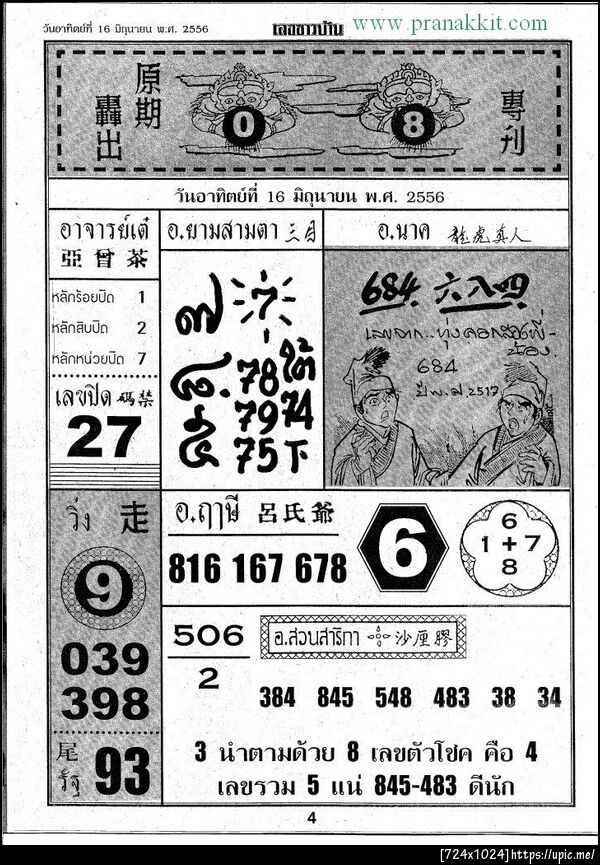 วันอาทิตย์ที่ 16 มิถุนายน พ.ศ. 2556
เลขชาวบ้าน
www.pranakkit.com
原期
轟出
0
8
專刊
วันอาทิตย์ที่ 16 มิถุนายน พ.ศ. 2556
อาจารย์เต๋
亞曾茶
หลักร้อยปิด 1
หลักสิบปิด 2
หลักหน่วยปิด 7
เลขปิด 碼禁
27
อ.ยามสามตา 三目
๗ 7
78 ใต้
79 74
75 下
อ.นาค 龍虎真人
684 六八四
684
ปี พ.ศ 2517
วิ่ง 走
9
039
398
尾
รัฐ
93
อ.ฤๅษี 呂氏爺
816 167 678
6
6
1 + 7
8
506
2
อ.สวนสาริกา 沙厘膠
384 845 548 483 38 34
3 นำตามด้วย 8 เลขตัวโชค คือ 4
เลขรวม 5 แน่ 845-483 ดีนัก
4
[724x1024]https://upic.me/